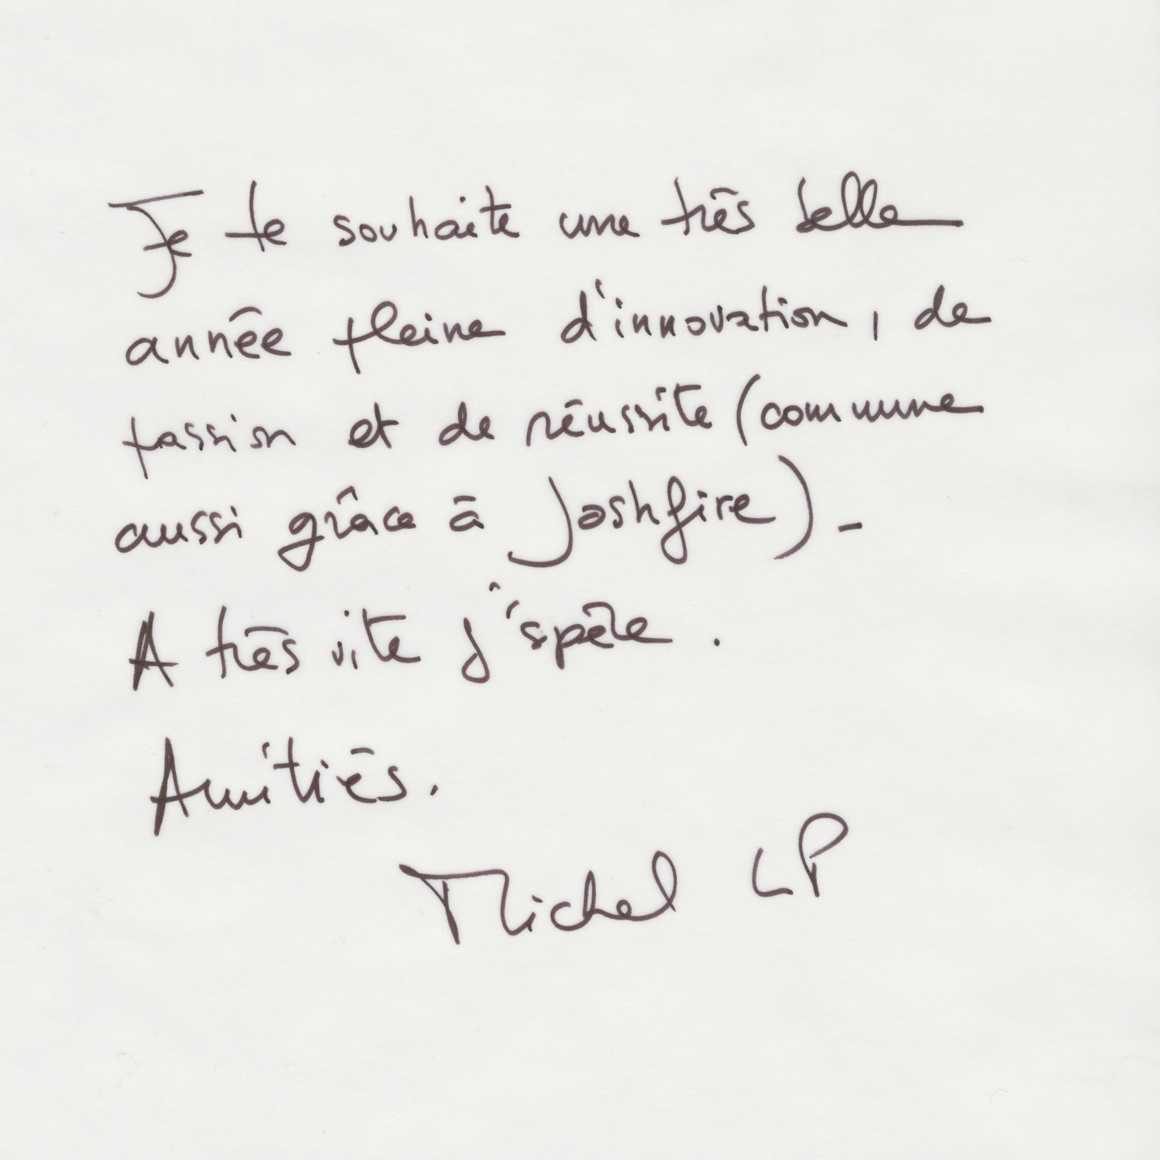 Je te souhaite une très belle
année pleine d'innovation, de
passion et de réussite (commune
aussi grâce à Joshfire) -
A très vite j'espère.
Amitiés.
Michel LP